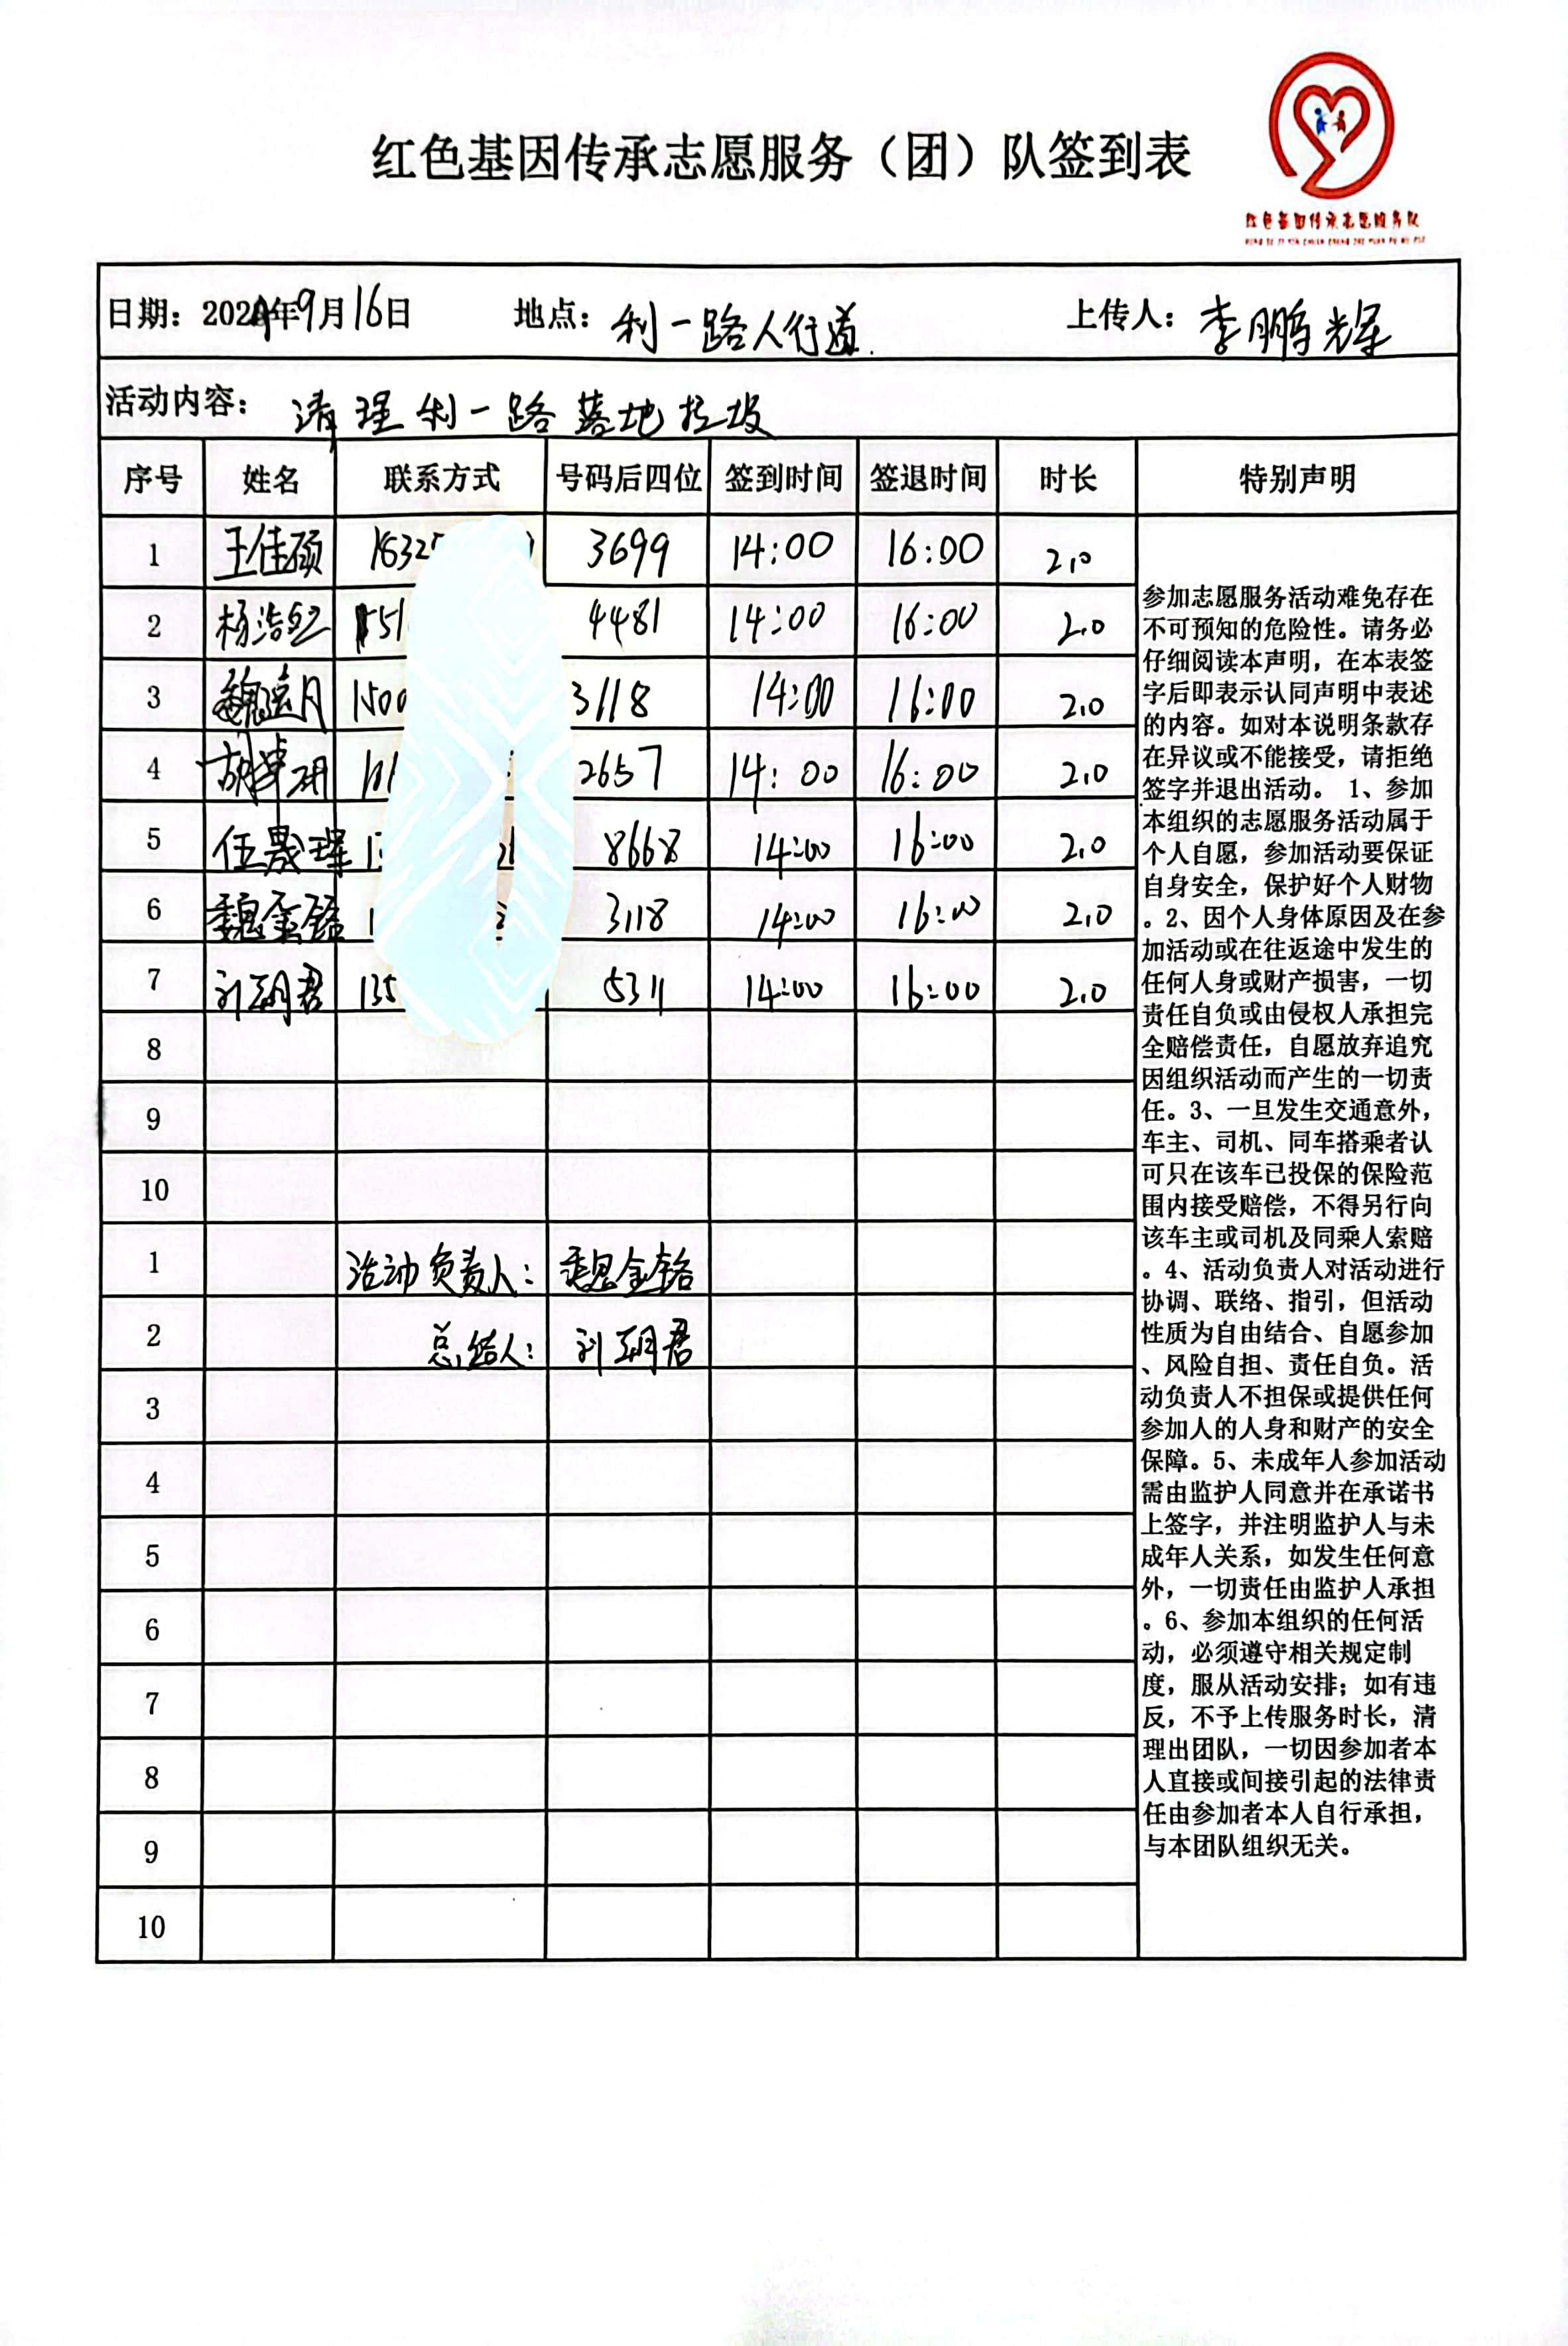 红色基因传承志愿服务（团）队签到表
红色基因传承志愿服务队
日期：2021年9月16日 地点：利一路人行道. 上传人：李鹏辉
活动内容：清理利一路落地垃圾
序号 姓名 联系方式 号码后四位 签到时间 签退时间 时长 特别声明
1 王佳硕 18325 3699 14:00 16:00 2.0
2 杨浩 151 4481 14:00 16:00 2.0
3 魏 月 1500 3118 14:00 16:00 2.0
4 胡 2657 14:00 16:00 2.0
5 伍晟 1 8668 14:00 16:00 2.0
6 魏金铭 1 3118 14:00 16:00 2.0
7 刘翊君 135 5311 14:00 16:00 2.0
8
9
10
1 活动负责人：魏金铭
2 总结人：刘翊君
3
4
5
6
7
8
9
10
参加志愿服务活动难免存在
不可预知的危险性。请务必
仔细阅读本声明，在本表签
字后即表示认同声明中表述
的内容。如对本说明条款存
在异议或不能接受，请拒绝
签字并退出活动。 1、参加
本组织的志愿服务活动属于
个人自愿，参加活动要保证
自身安全，保护好个人财物
。2、因个人身体原因及在参
加活动或在往返途中发生的
任何人身或财产损害，一切
责任自负或由侵权人承担完
全赔偿责任，自愿放弃追究
因组织活动而产生的一切责
任。3、一旦发生交通意外，
车主、司机、同车搭乘者认
可只在该车已投保的保险范
围内接受赔偿，不得另行向
该车主或司机及同乘人索赔
。4、活动负责人对活动进行
协调、联络、指引，但活动
性质为自由结合、自愿参加
、风险自担、责任自负。活
动负责人不担保或提供任何
参加人的人身和财产的安全
保障。5、未成年人参加活动
需由监护人同意并在承诺书
上签字，并注明监护人与未
成年人关系，如发生任何意
外，一切责任由监护人承担
。6、参加本组织的任何活
动，必须遵守相关规定制
度，服从活动安排；如有违
反，不予上传服务时长，清
理出团队，一切因参加者本
人直接或间接引起的法律责
任由参加者本人自行承担，
与本团队组织无关。